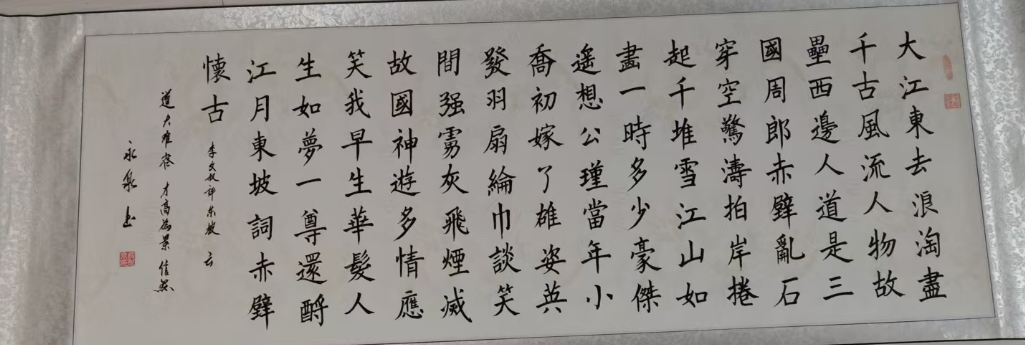 大江東去浪淘盡
千古風流人物故
壘西邊人道是三
國周郎赤壁亂石
穿空驚濤拍岸捲
起千堆雪江山如
畫一時多少豪傑
遥想公瑾當年小
喬初嫁了雄姿英
發羽扇綸巾談笑
間强虜灰飛煙滅
故國神遊多情應
笑我早生華髮人
生如夢一尊還酹
江月東坡詞赤壁
懷古
道大难容 才高為累 信然
永泉书